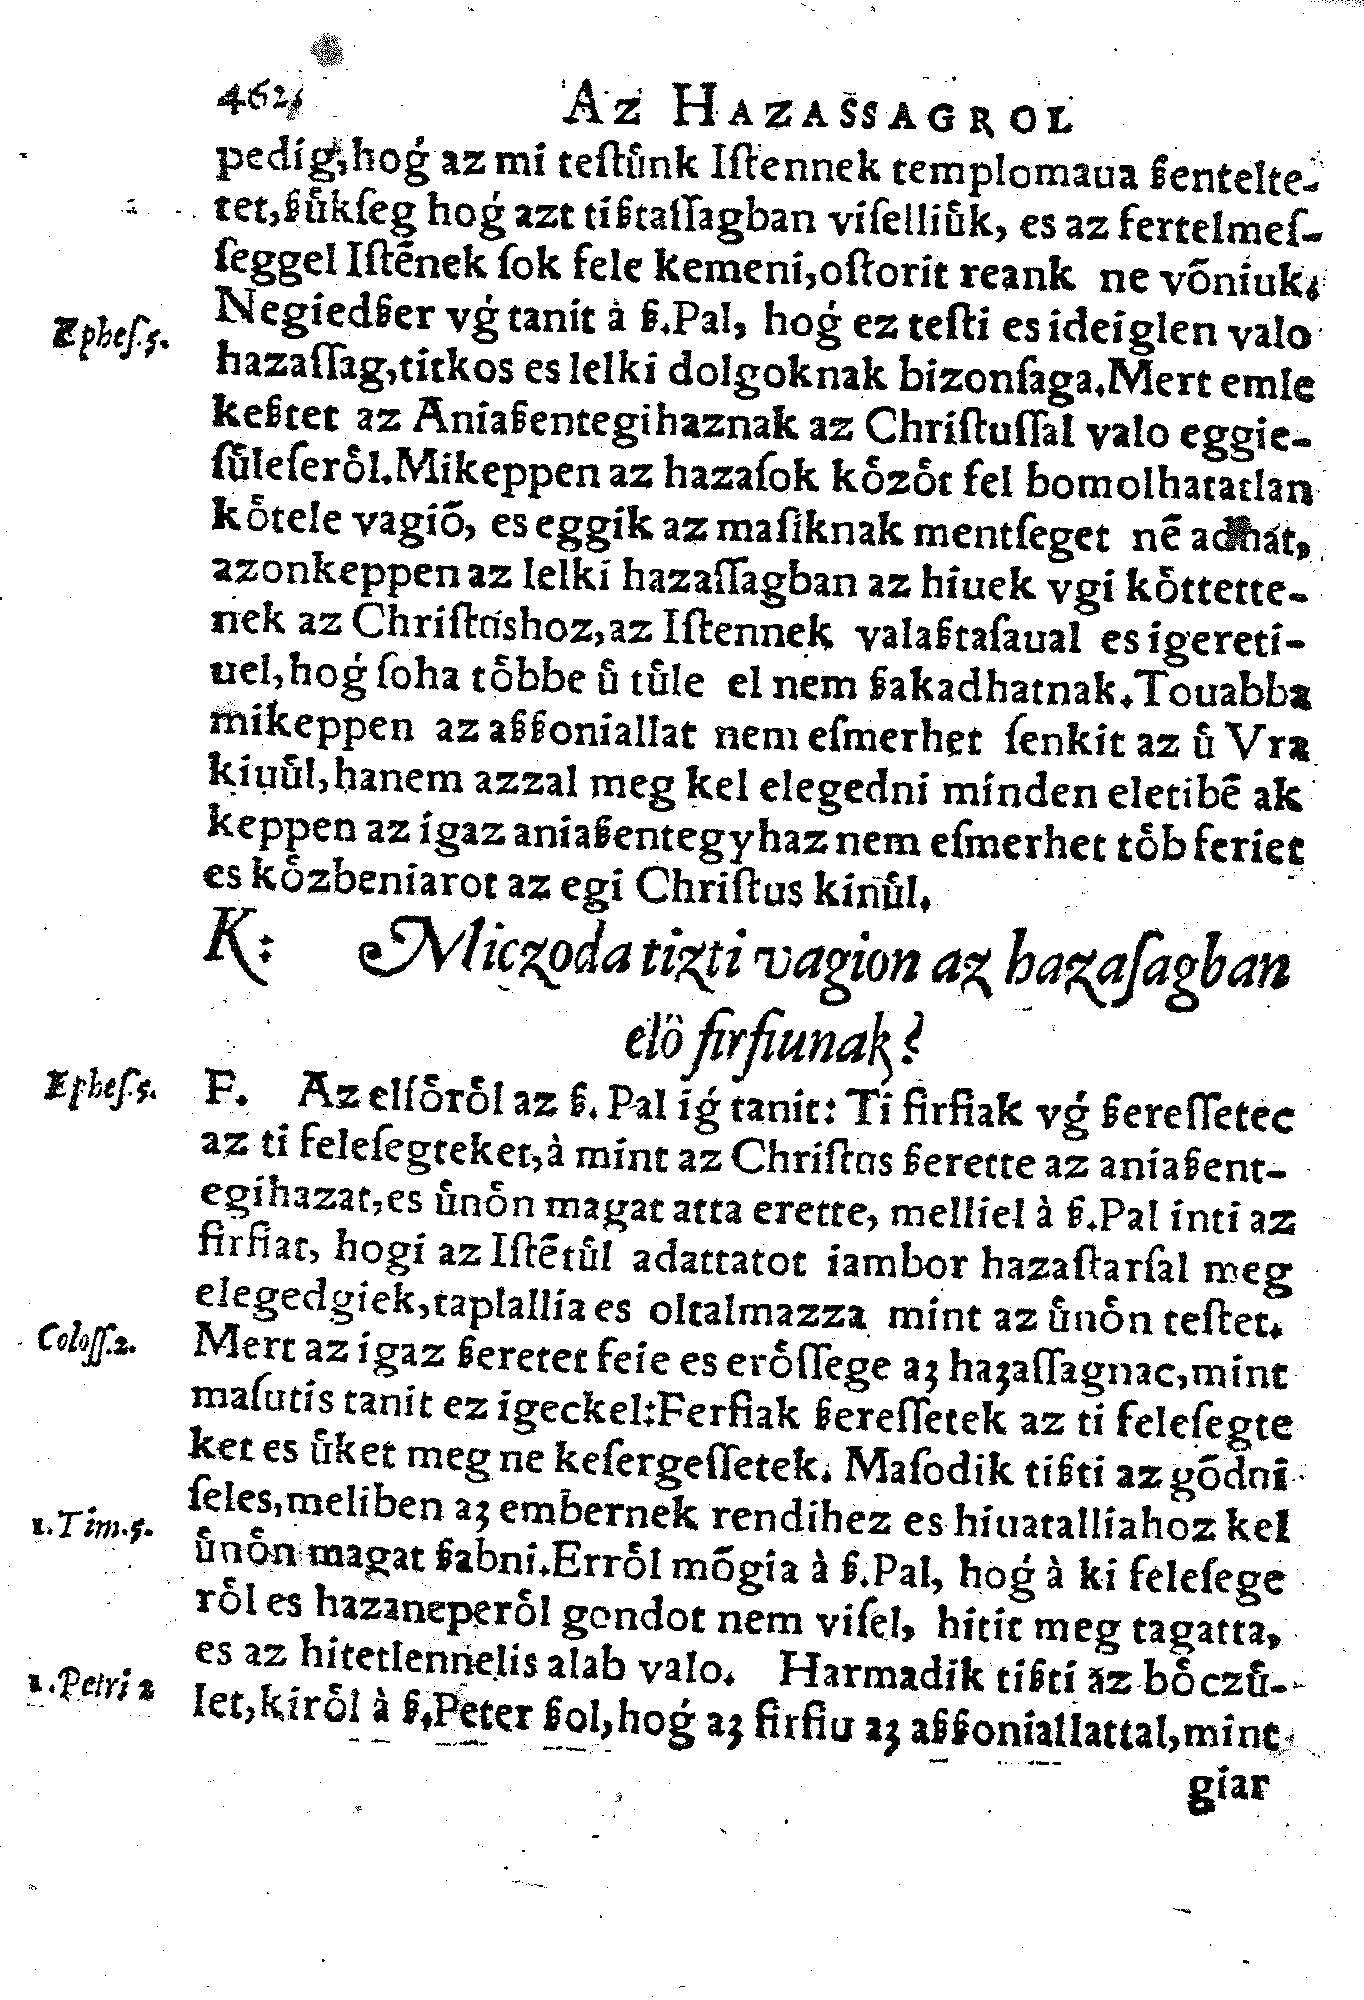 462,
AZ HAZASSAGROL
pedig, hoǵ az mi teſtůnk Iſtennek templomaua ßentelte-
tet, ßůkſeg hoǵ azt tißtaſſagban viſelliůk, es az fertelmeſ-
ſeggel Iſtēnek ſok fele kemeni, oſtorit reank ne võniuk.
Epheſ.5.
Negiedßer vǵ tanit à ß. Pal, hoǵ ez teſti es ideiglen valo
hazaſſag, titkos es lelki dolgoknak bizonſaga. Mert emle
keßtet az Aniaßentegihaznak az Chriſtuſſal valo eggie-
ſůleſero̊l. Mikeppen az hazaſok ko̊zo̊t fel bomolhatatlan
ko̊tele vagiõ, es eggik az maſiknak mentſeget nē adhat,
azonkeppen az lelki hazaſſagban az hiuek vgi ko̊ttette-
nek az Chriſtushoz, az Iſtennek valaßtaſaual es igereti-
uel, hoǵ ſoha to̊bbe ů tůle el nem ßakadhatnak. Touabba
mikeppen az aßßoniallat nem eſmerhet ſenkit az ů Vra
kiuůl, hanem azzal meg kel elegedni minden eletibē ak
keppen az igaz aniaßentegyhaz nem eſmerhet to̊b feriet
es ko̊zbeniarot az egi Chriſtus kinůl.
K: Miczoda tizti vagion az hazaſagban
elö firfiunak?
Epheſ.5.
F. Az elſo̊ro̊l az ß. Pal iǵ tanit: Ti firfiak vǵ ßereſſetec
az ti feleſegteket, à mint az Chriſtus ßerette az aniaßent-
egihazat, es ůno̊n magat atta erette, melliel à ß. Pal inti az
firfiat, hogi az Iſtētůl adattatot iambor hazaſtarſal meg
elegedgiek, taplallia es oltalmazza mint az ůno̊n teſtet.
Coloſſ.2.
Mert az igaz ßeretet feie es ero̊ſſege aʒ haʒaſſagnac, mint
maſutis tanit ez igeckel: Ferfiak ßereſſetek az ti feleſegte
ket es ůket meg ne keſergeſſetek. Maſodik tißti az gõdni
ſeles, meliben aʒ embernek rendihez es hiuatalliahoz kel
1.Tim.5.
ůno̊n magat ßabni. Erro̊l mõgia à ß. Pal, hoǵ à ki feleſege
ro̊l es hazanepero̊l gondot nem viſel, hitit meg tagatta,
es az hitetlennelis alab valo. Harmadik tißti az bo̊czů-
1.Petri 2
let, kiro̊l à ß. Peter ßol, hoǵ aʒ firfiu aʒ aßßoniallattal, mint
giar